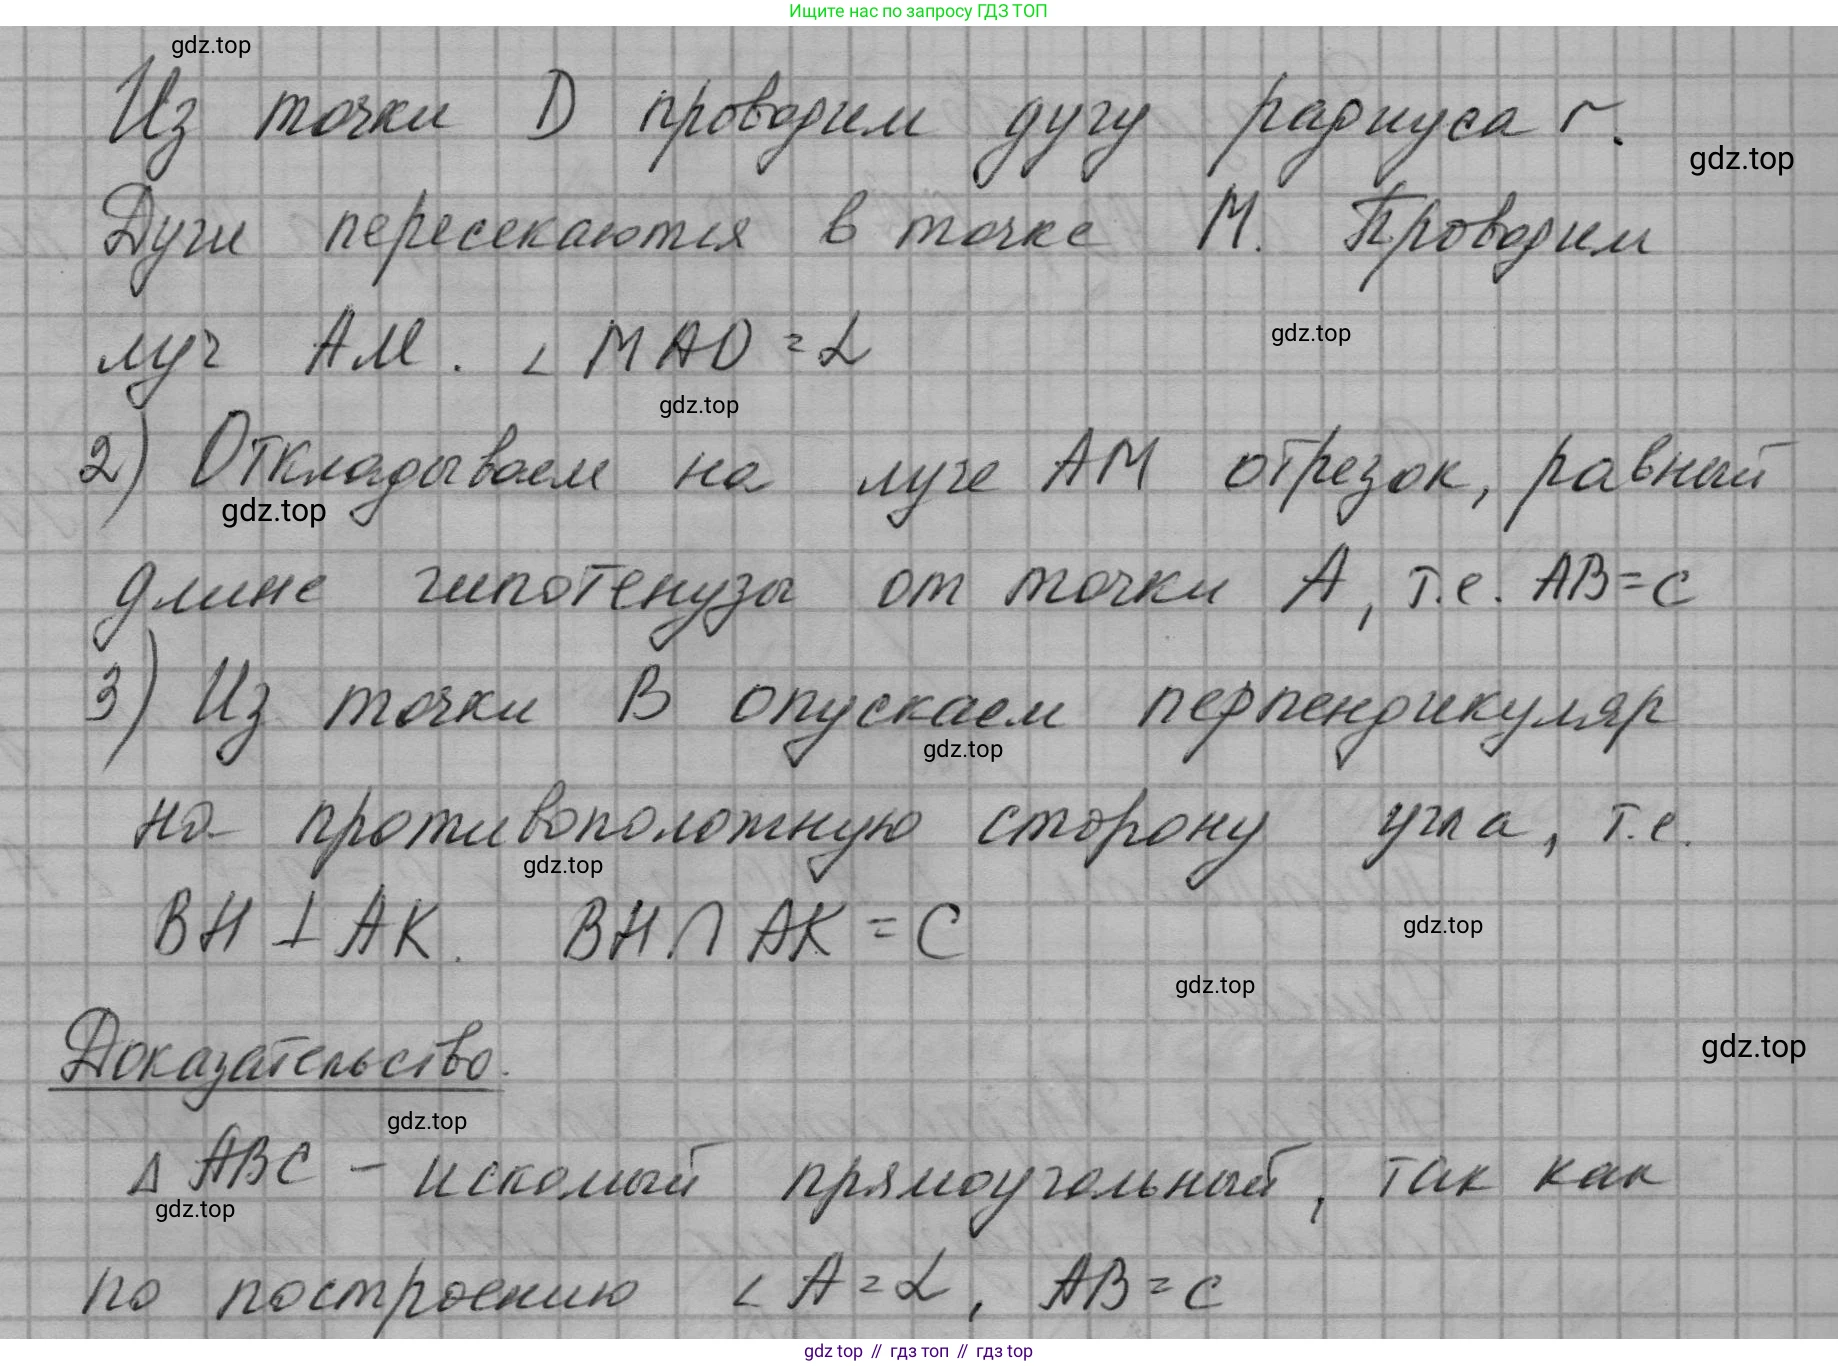 Ищите нас по запросу ГДЗ ТОП
gdz.top
Из точки D проводим дугу радиуса r.
gdz.top
Дуги пересекаются в точке M. Проводим
луч AM. ∠MAD = α
gdz.top
gdz.top
2) Откладываем на луче AM отрезок, равный
gdz.top
длине гипотенузы от точки A, т.е. AB = c
3) Из точки B опускаем перпендикуляр
gdz.top
на противоположную сторону угла, т.е.
gdz.top
BH ⊥ AK. BH ∩ AK = C
gdz.top
gdz.top
Доказательство.
gdz.top
gdz.top
Δ ABC – искомый прямоугольный, так как
gdz.top
по построению ∠A = α, AB = c
gdz top // гдз топ // гдз top